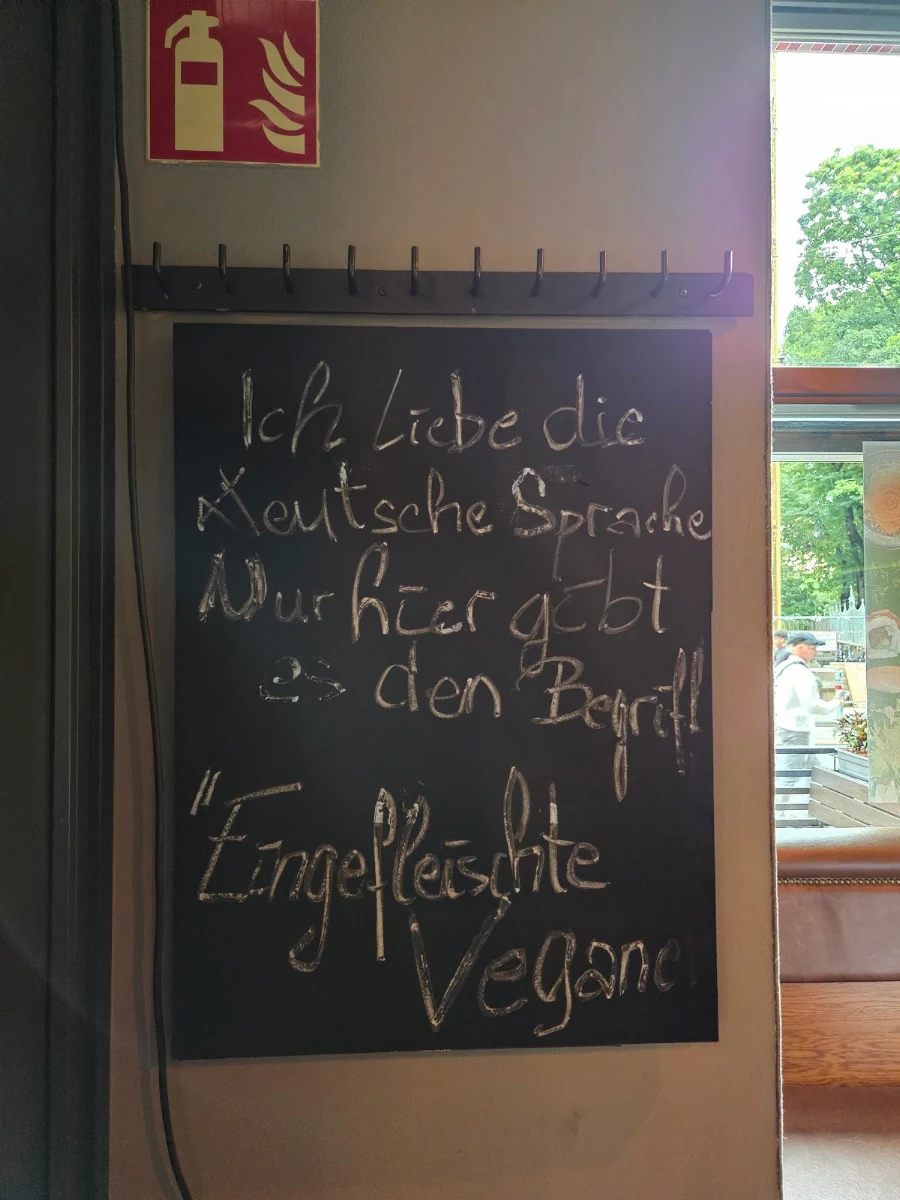 Ich Liebe die
Deutsche Sprache
Nur hier gibt
es den Begriff
"Eingefleischte
Veganer